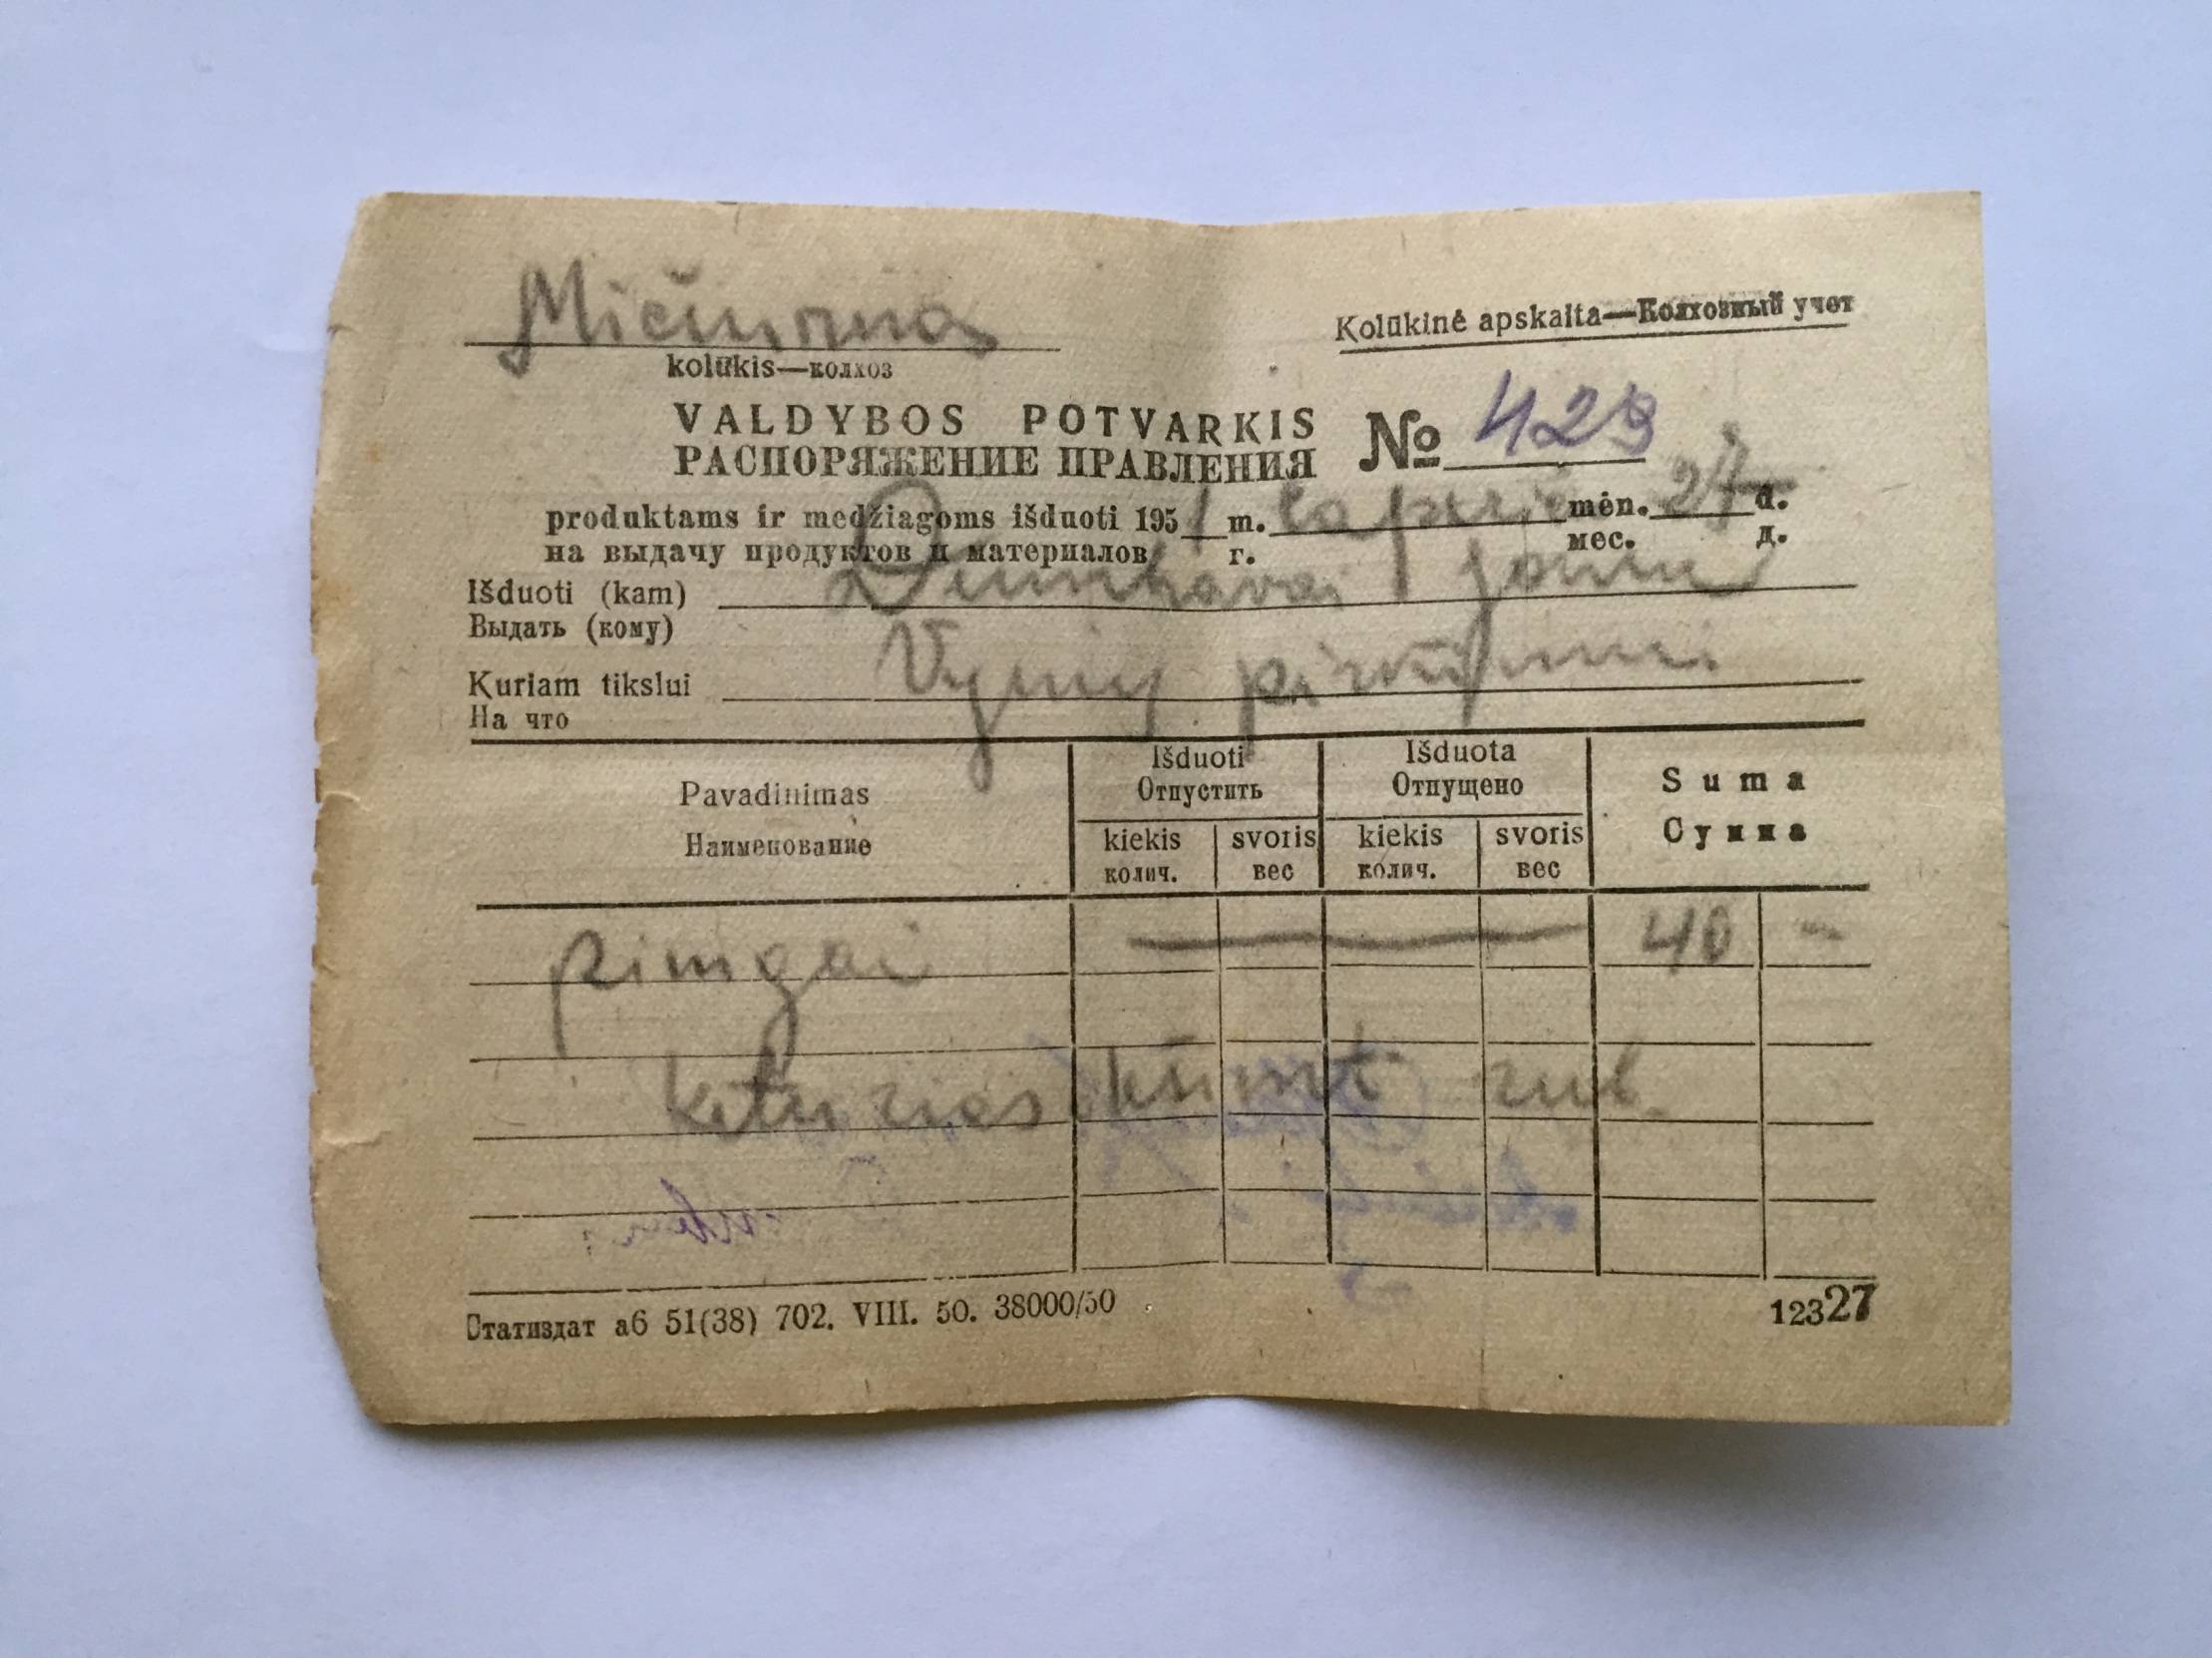 Mičiurina
Kolūkinė apskaita—Колхозный учет
kolūkis—колхоз
VALDYBOS POTVARKIS
РАСПОРЯЖЕНИЕ ПРАВЛЕНИЯ
№ 429
produktams ir medžiagoms išduoti 1951 m. lapkričio mėn. 27 d.
на выдачу продуктов и материалов г. мес. д.
Išduoti (kam) Jonui
Выдать (кому)
Kuriam tikslui Vynių pirkimui
На что
Išduoti Išduota
Отпустить Отпущено
Pavadinimas Suma
Наименование Сумма
kiekis svoris kiekis svoris
колич. вес колич. вес
pinigai 40 -
keturias rub.
Статиздат аб 51(38) 702. VIII. 50. 38000/50
12327